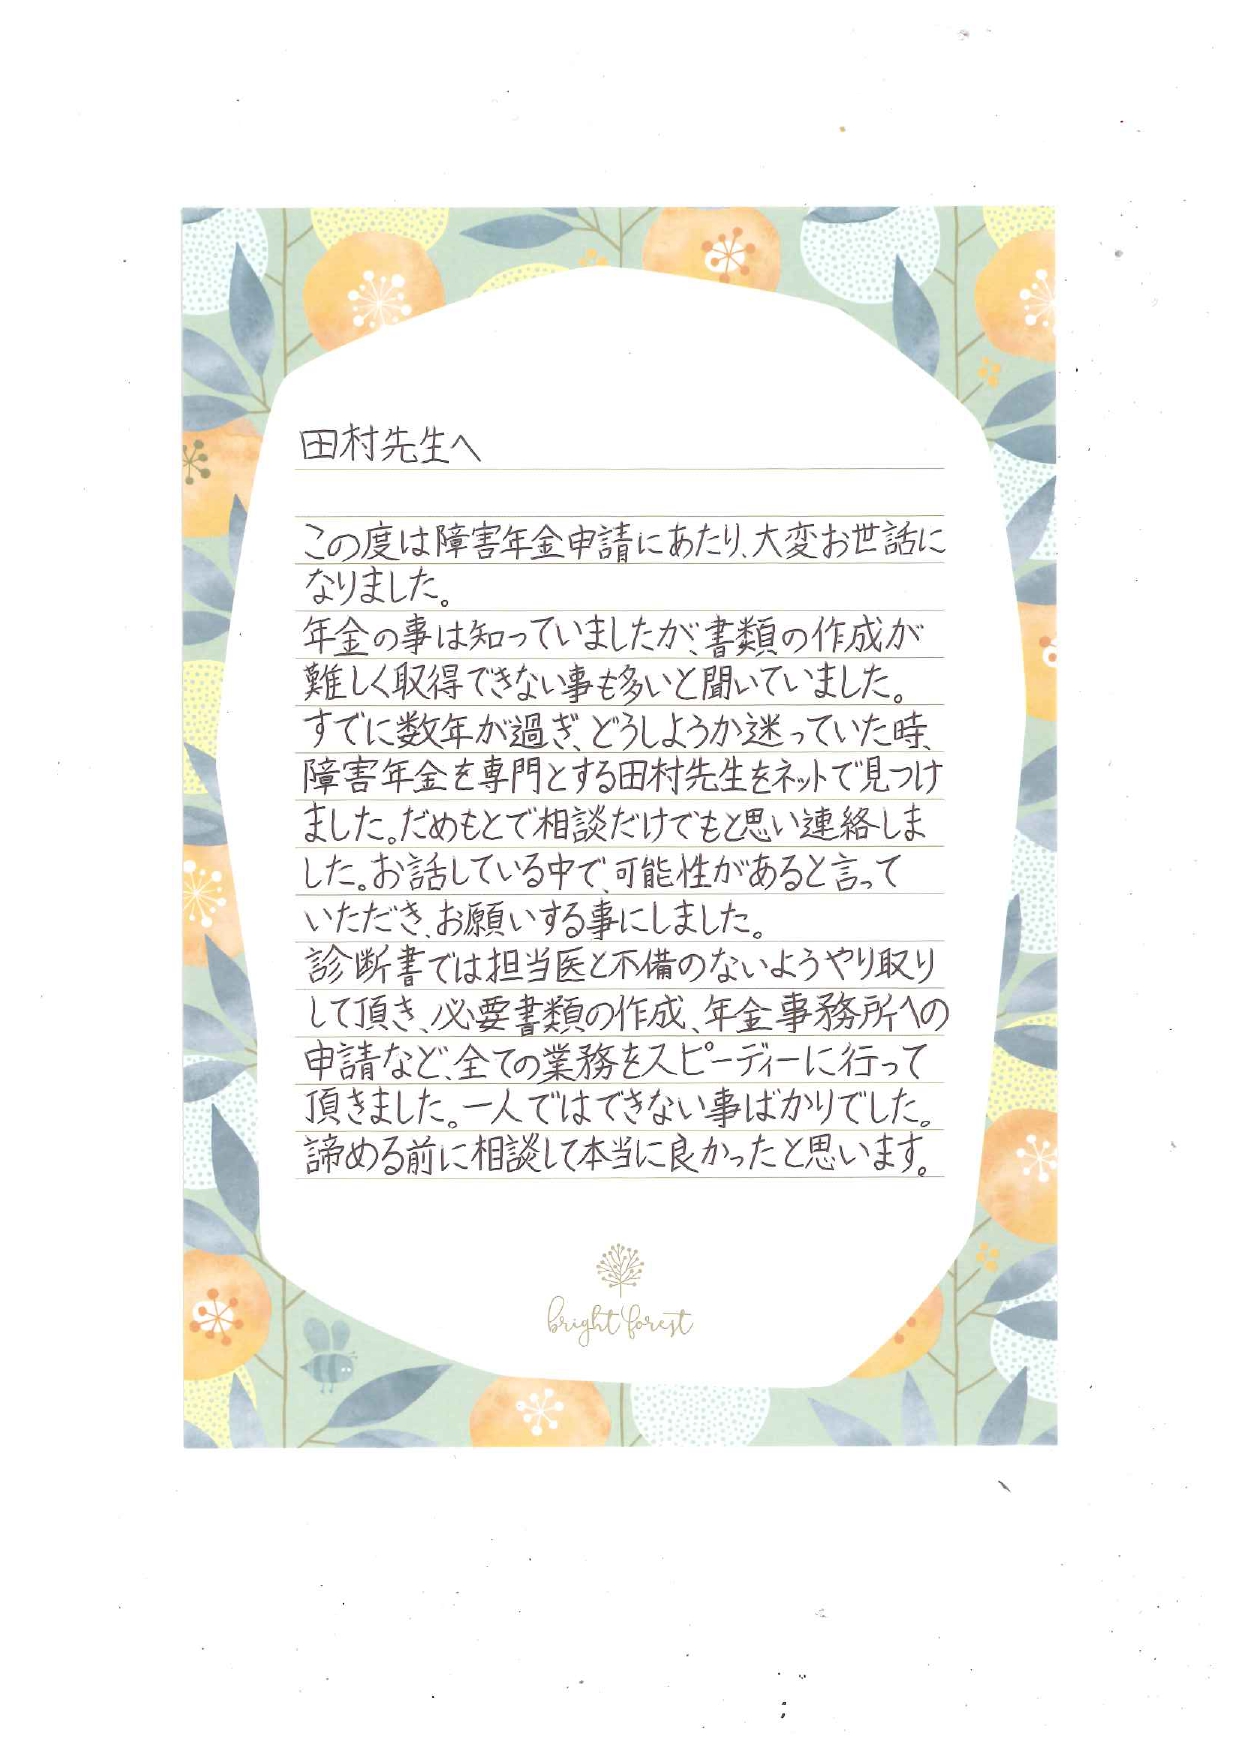 田村先生へ
この度は障害年金申請にあたり、大変お世話に
なりました。
年金の事は知っていましたが、書類の作成が
難しく取得できない事も多いと聞いていました。
すでに数年が過ぎ、どうしようか迷っていた時、
障害年金を専門とする田村先生をネットで見つけ
ました。だめもとで相談だけでもと思い連絡しま
した。お話している中で、可能性があると言って
いただき、お願いする事にしました。
診断書では担当医と不備のないようやり取り
して頂き、必要書類の作成、年金事務所への
申請など、全ての業務をスピーディーに行って
頂きました。一人ではできない事ばかりでした。
諦める前に相談して本当に良かったと思います。
bright forest